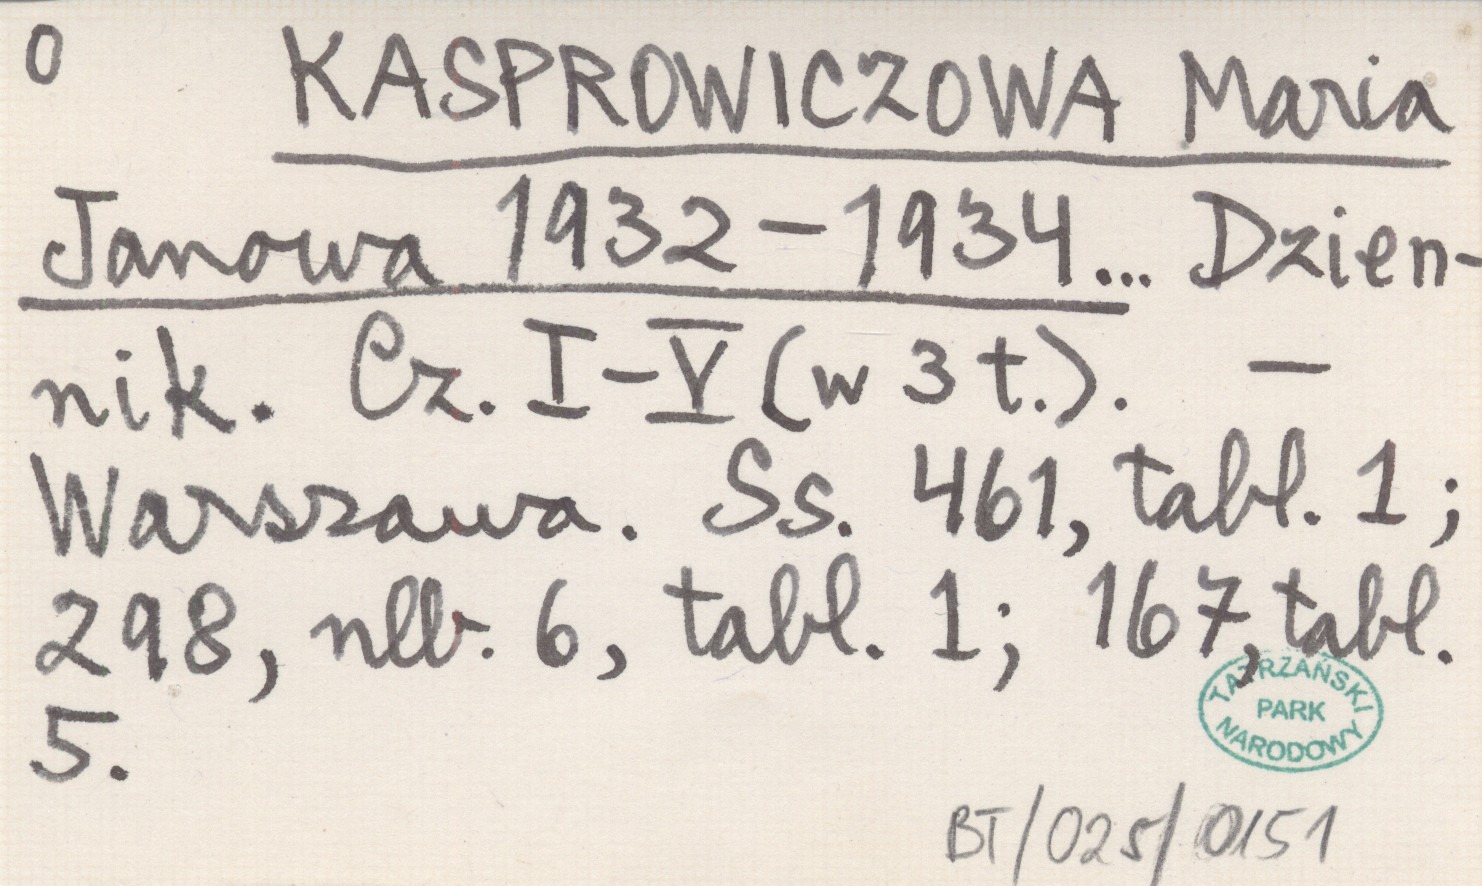 O KASPROWICZOWA Maria
Janowa 1932-1934... Dzien-
nik. Cz. I-V (w 3 t.). —
Warszawa. Ss. 461, tabl. 1;
298, nlb. 6, tabl. 1; 167, tabl.
5.
TATRZAŃSKI
PARK
NARODOWY
BT/025/0151